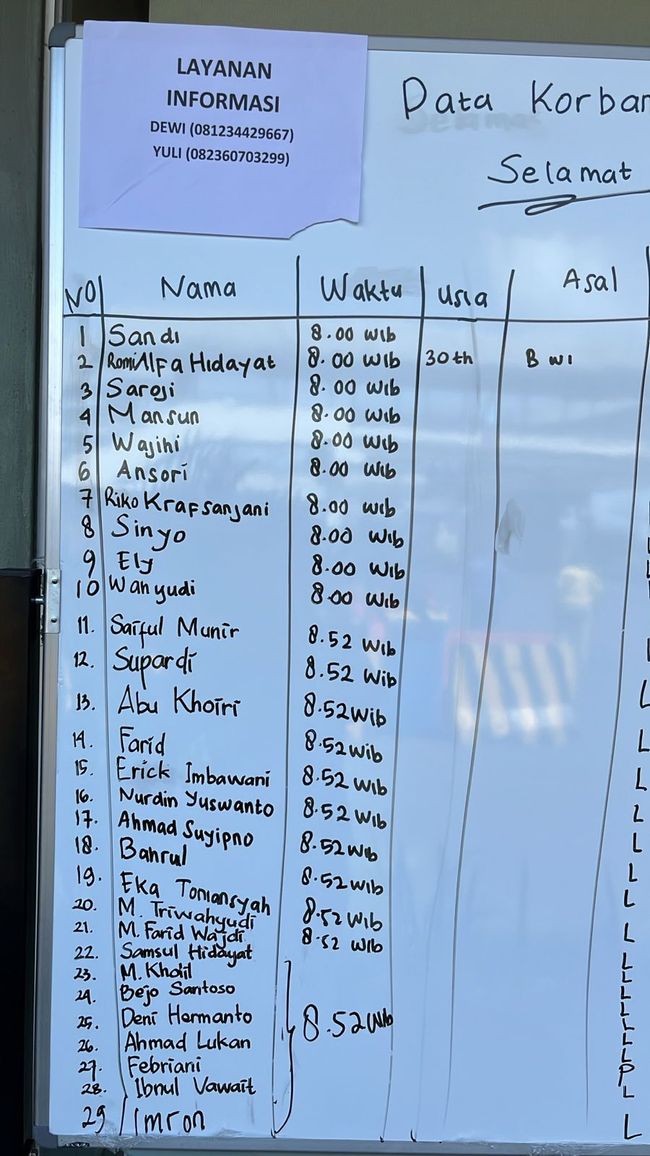 LAYANAN
INFORMASI
DEWI (081234429667)
YULI (082360703299)
Data Korban
Selamat
NO Nama Waktu Usia Asal
1 Sandi 8.00 Wib
2 Romi Alfa Hidayat 8.00 Wib 30 th B wi
3 Saroji 8.00 Wib
4 Mansun 8.00 Wib
5 Wajihi 8.00 Wib
6 Ansori 8.00 Wib
7 Riko Krafsanjani 8.00 Wib
8 Sinyo 8.00 Wib
9 Ely 8.00 Wib
10 Wahyudi 8.00 Wib
11. Saiful Munir 8.52 Wib
12. Supardi 8.52 Wib
13. Abu Khoiri 8.52 Wib L
14. Farid 8.52 Wib L
15. Erick Imbawani 8.52 Wib L
16. Nurdin Yuswanto 8.52 Wib L
17. Ahmad Suyipno 8.52 Wib L
18. Bahrul 8.52 Wib L
19. Eka Toniansyah 8.52 Wib L
20. M. Triwahyudi 8.52 Wib L
21. M. Farid Wajdi L
22. Samsul Hidayat L
23. M. Kholil L
24. Bejo Santoso L
25. Deni Hermanto 8.52 Wib L
26. Ahmad Lukan L
27. Febriani P
28. Ibnul Vawait L
29 Imron L